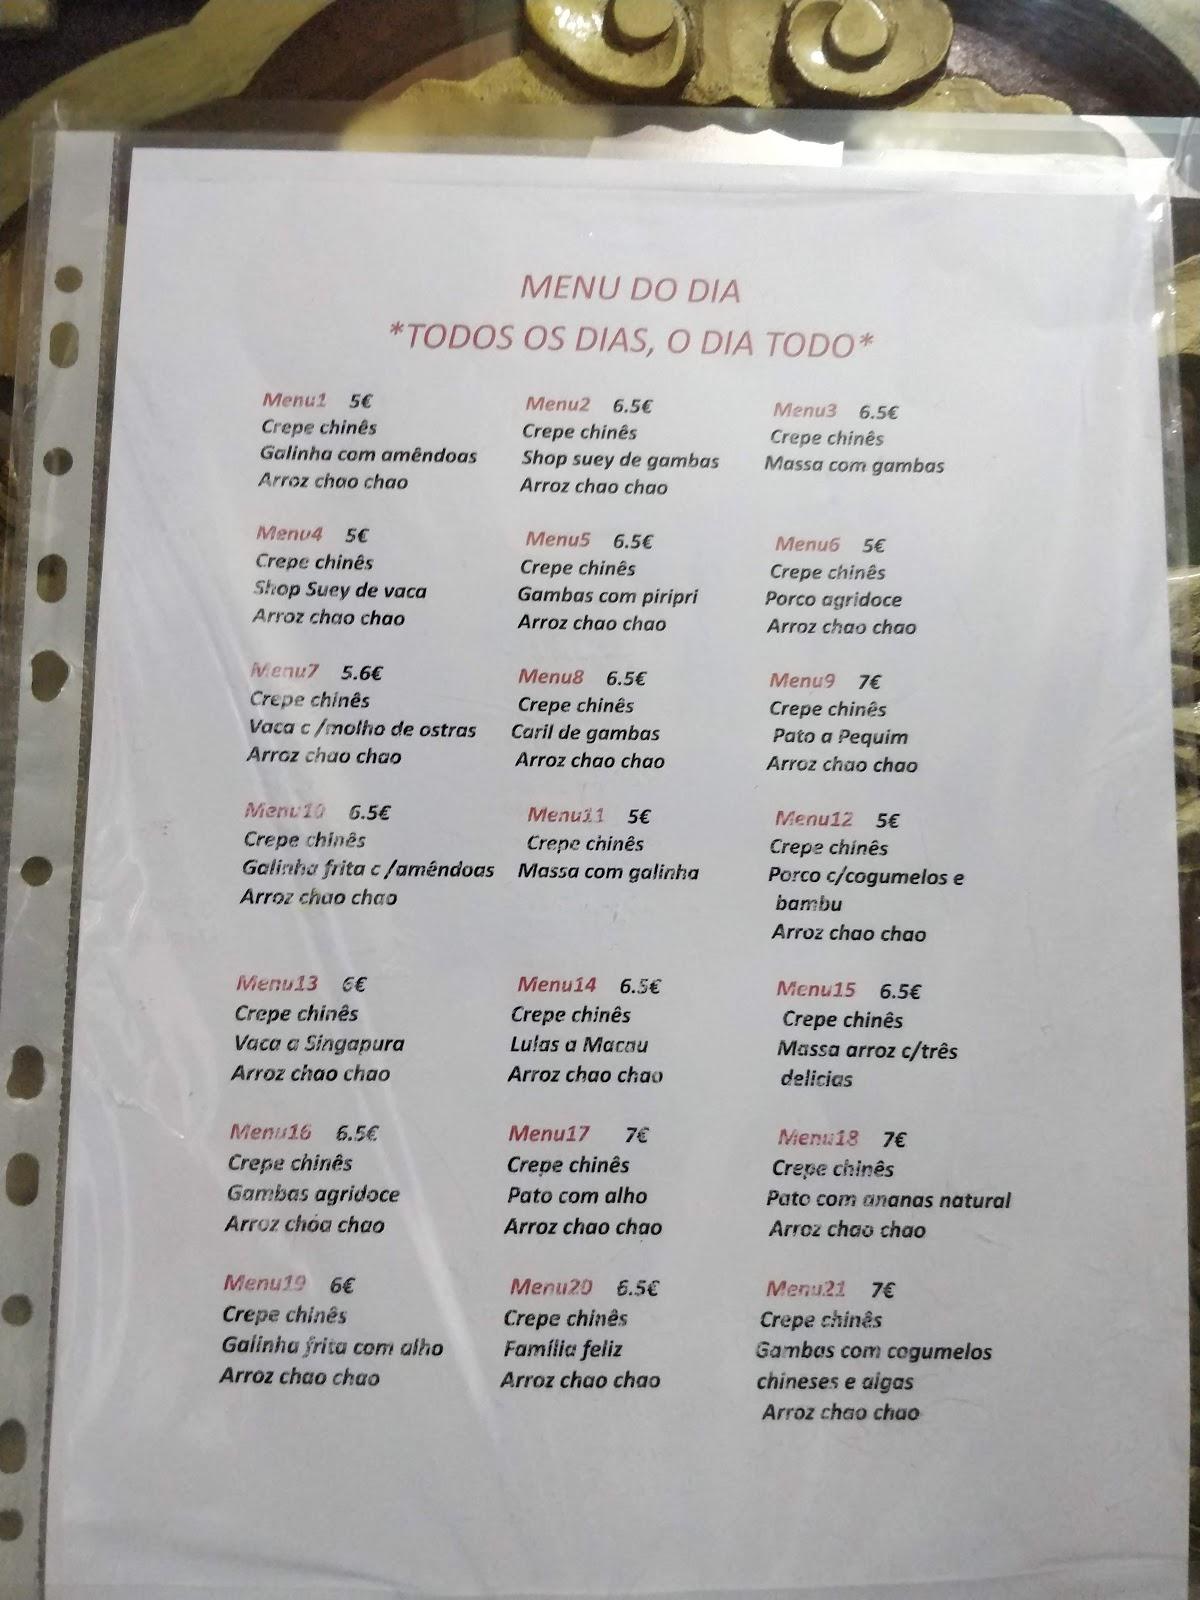 MENU DO DIA
*TODOS OS DIAS, O DIA TODO*
Menu1 5€
Crepe chinês
Galinha com amêndoas
Arroz chao chao
Menu2 6.5€
Crepe chinês
Shop suey de gambas
Arroz chao chao
Menu3 6.5€
Crepe chinês
Massa com gambas
Menu4 5€
Crepe chinês
Shop Suey de vaca
Arroz chao chao
Menu5 6.5€
Crepe chinês
Gambas com piripri
Arroz chao chao
Menu6 5€
Crepe chinês
Porco agridoce
Arroz chao chao
Menu7 5.6€
Crepe chinês
Vaca c /molho de ostras
Arroz chao chao
Menu8 6.5€
Crepe chinês
Caril de gambas
Arroz chao chao
Menu9 7€
Crepe chinês
Pato a Pequim
Arroz chao chao
Menu10 6.5€
Crepe chinês
Galinha frita c /amêndoas
Arroz chao chao
Menu11 5€
Crepe chinês
Massa com galinha
Menu12 5€
Crepe chinês
Porco c/cogumelos e
bambu
Arroz chao chao
Menu13 6€
Crepe chinês
Vaca a Singapura
Arroz chao chao
Menu14 6.5€
Crepe chinês
Lulas a Macau
Arroz chao chao
Menu15 6.5€
Crepe chinês
Massa arroz c/três
delicias
Menu16 6.5€
Crepe chinês
Gambas agridoce
Arroz chóa chao
Menu17 7€
Crepe chinês
Pato com alho
Arroz chao chao
Menu18 7€
Crepe chinês
Pato com ananas natural
Arroz chao chao
Menu19 6€
Crepe chinês
Galinha frita com alho
Arroz chao chao
Menu20 6.5€
Crepe chinês
Família feliz
Arroz chao chao
Menu21 7€
Crepe chinês
Gambas com cogumelos
chineses e algas
Arroz chao chao